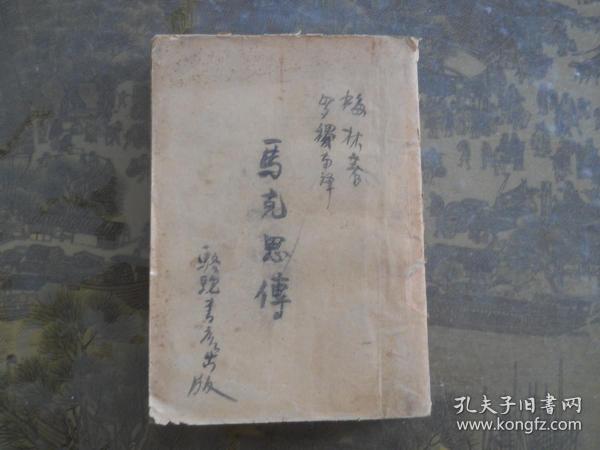 梅林著
罗稷南譯
馬克思傳
駱駝書店出版
孔夫子旧书网
www.kongfz.com